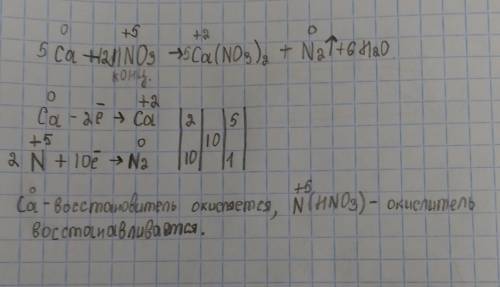 0 +5 +2 0
5 Ca + 12HNO3 → 5Ca(NO3)2 + N2↑ + 6H2O
конц.
0 +2
Ca - 2ē → Ca | 2 | | 5 |
+5 0 | | 10 | |
2 N + 10ē → N2 | 10 | | 1 |
0 +5
Ca - восстановитель окисляется, N(HNO3) - окислитель
восстанавливается.